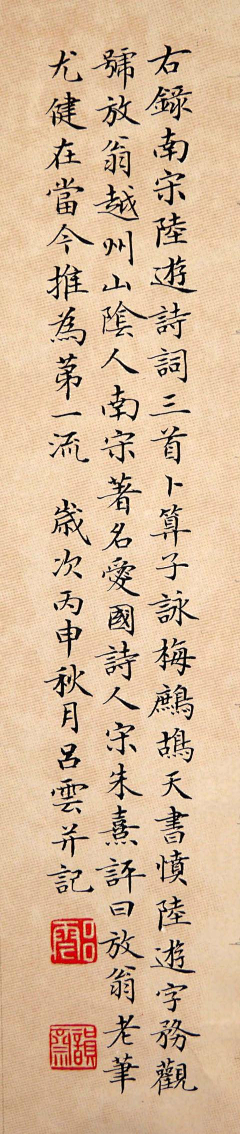 右錄南宋陸遊詩詞三首卜算子詠梅鷓鴣天書憤陸遊字務觀
號放翁越州山陰人南宋著名愛國詩人宋朱熹評曰放翁老筆
尤健在當今推為第一流 歲次丙申秋月呂雲并記
呂雲